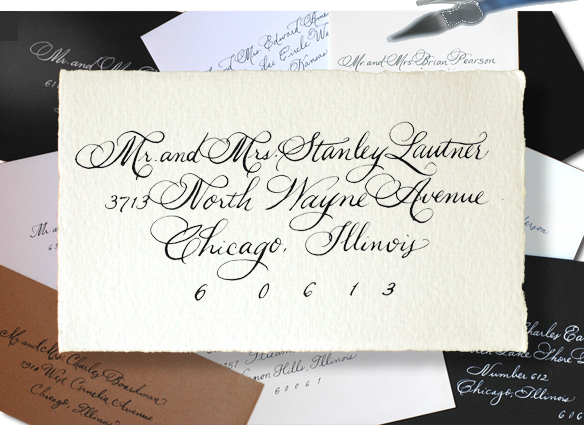 Mr. and Mrs. Stanley Lautner
3713 North Wayne Avenue
Chicago, Illinois
6 0 6 1 3
Mr. and
Mrs. Edward
Circle
Kansas
Mr. and Mrs. Brian Pearson
Mr. and Mrs. Charles Boardman
1910 West Cornelia Avenue
Chicago, Illinois
Hills, Illinois
6 0 0 6 1
Charles
Lake Shore
Number 612
Chicago, Illinois
6 0 6